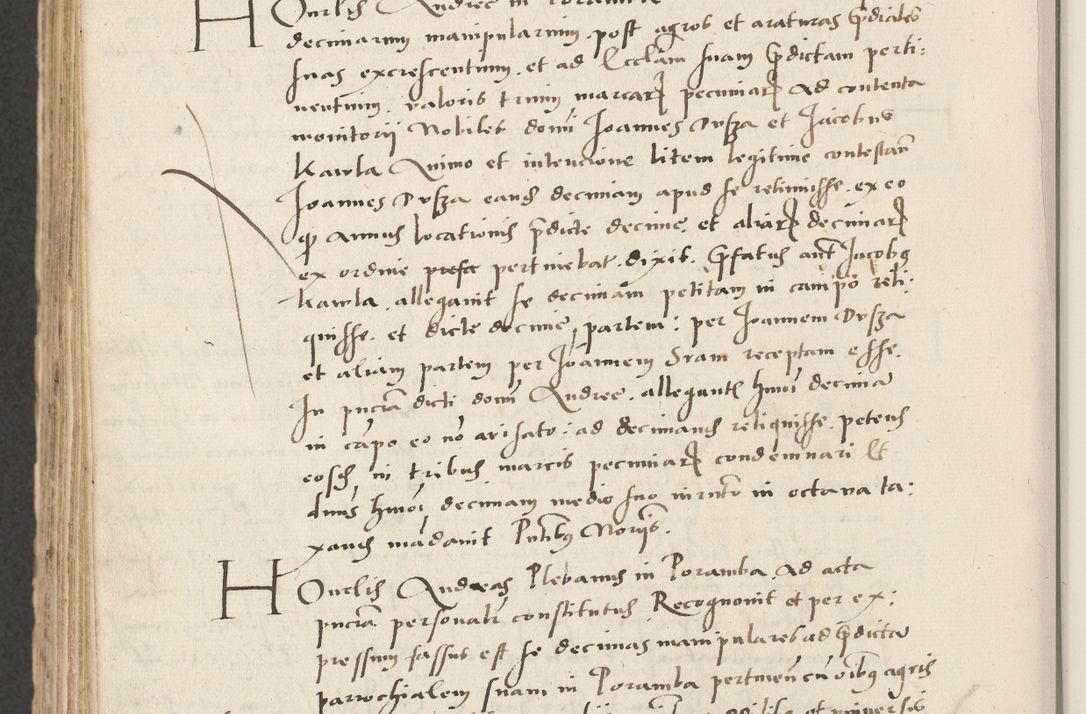 Honrlis Andree in Poramba
decimarum manipularium post agros et araturas p̄dictas
suas excrescentium, et ad Ecclam suam p̄dictam perti:
nentium, valoris trium marcarꝝ pecuniarꝝ Ad contenta
monitorij Nobiles domi Joannes Dusza et Jacobus
Kawla Animo et intencione litem legitime contestan
Joannes Dusza eandē decimam apud se retinuisse, ex eo
qꝫ annus locationis p̄dicte decime, et aliarꝝ decimarꝝ
ex ordine pertinebat, dixit. p̄fatus aut Jacobꝫ
Kawla, allegauit se decimam petitam in campo reli:
quisse, et dicte decime, partem: per Joannem Dusza
et aliam partem per Joannem Sram receptam esse.
In pn̄ciā dicti domi Andree, allegantꝭ hmōi decima
in cāpo eo nō arisato: ad decimandū reliquisse, petens
eosdē in tribus marcis pecuniarꝝ condemnari Et
dn̄us hmōi decimam medio suo iurn̄to in octava ta:
xandū mādauit Pn̄tibꝫ Norijs.
Honrlis Andreas Plebanus in Poramba, Ad acta
pn̄ciā personalr constitutus Recognouit et per ex:
pressum fassus est se decimas manipulares ad p̄dictā
parrochialem suam in Poramba pertinen̄ cū oībꝫ agris
et vniuersis